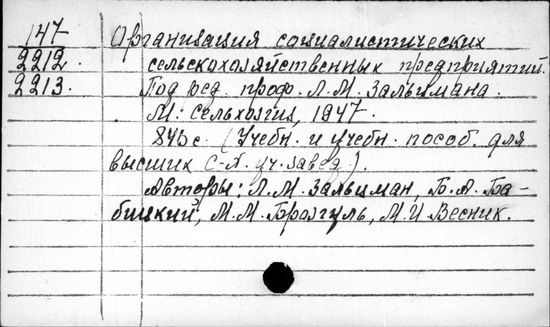 147 Организация социалистических
2212. сельскохозяйственных предприятий.
2213. Под ред. проф. Л.М. Зальцмана.
М: Сельхозгиз, 1947.
840с. (Учебн. и учебн. пособ. для
высших с-х. уч. завед).
Авторы: Л.М. Зальцман, Б.А. Ба-
бицкий, М.М. Брозгуль, М.И Весник.